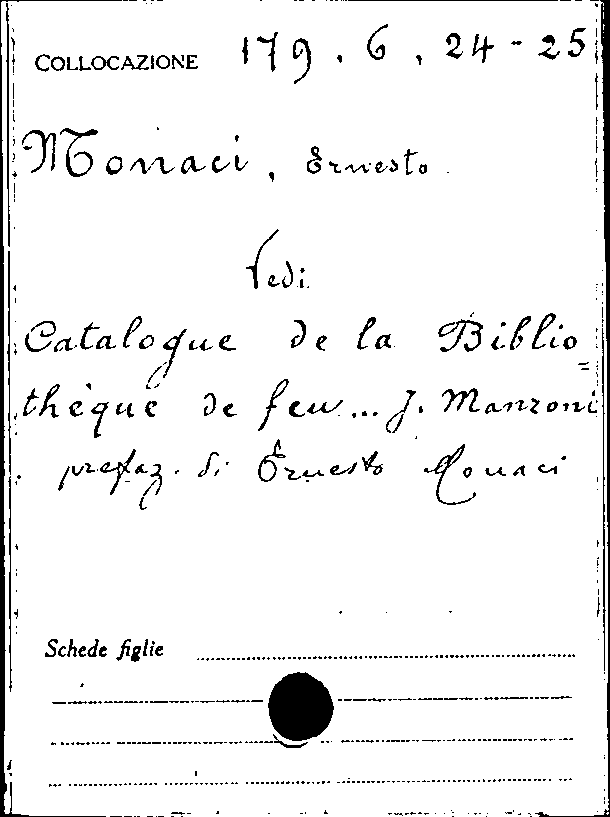 COLLOCAZIONE 179. 6. 24-25
Monaci, Ernesto
Vedi
Catalogue de la Biblio=
thèque de feu... J. Manzoni
prefaz. di Ernesto Monaci
Schede figlie